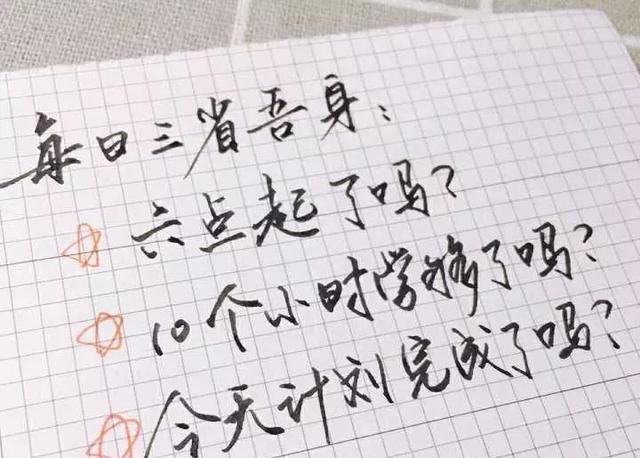 每日三省吾身:
☆ 六点起了吗?
☆ 10个小时学够了吗?
☆ 今天计划完成了吗?